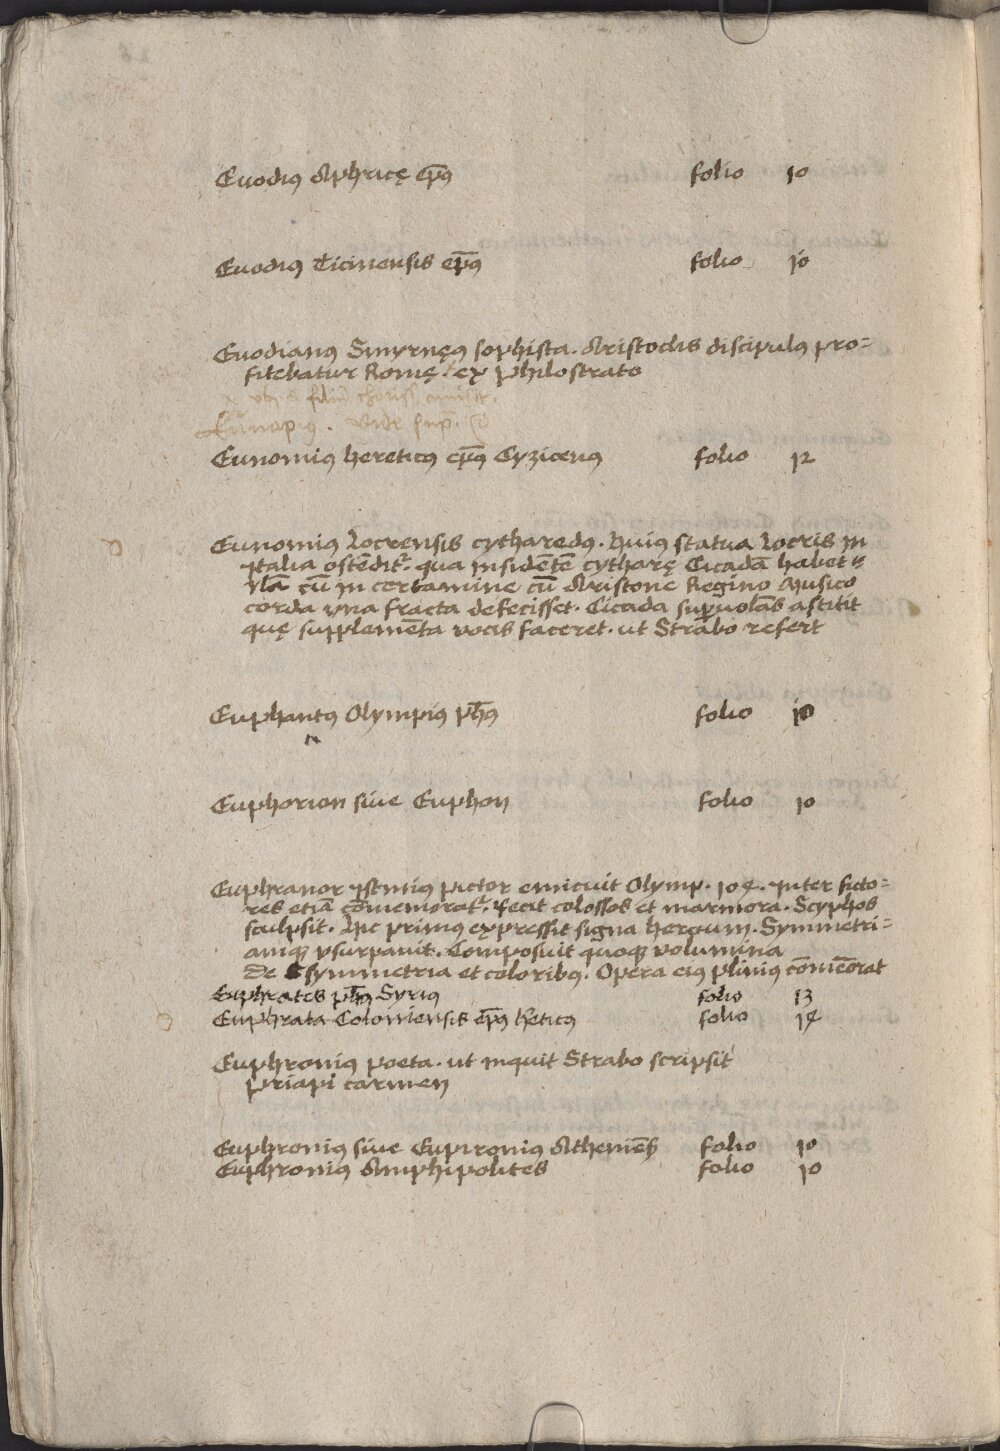 Euodiꝰ Aphricę ep̅ꝰ folio 10
Euodiꝰ Ticinensis ep̅ꝰ folio 10
Euodianꝰ Smyrnęꝰ sophista. Aristoclis discipulꝰ pro=
fitebatur Romę. ex philostrato
Eunapiꝰ. vide sup̅.
Eunomiꝰ hereticꝰ ep̅ꝰ Cyzicenꝰ folio 12
Eunomiꝰ Locrensis cytharedꝰ. huiꝰ statua Locris in
Italia ostēditᷣ. qua insidentē cytharę Cicadā habet.
Nā cū in certamine cū Aristone Regino Musico
corda vna fracta defecisset. Cicada supuolās astitit
quę supplemēta vocis faceret. ut Strabo refert
Euphantꝰ Olympiꝰ ph̅ꝰ folio 10
Euphorion siue Euphon folio 10
Euphranor Istmiꝰ pictor emicuit Olymp. 104. Inter ficto=
res etiā cōmemoratᷣ. fecit colossos et marmora. Scyphos
sculpsit. Hic primꝰ expressit signa heroum. Symmetri=
amqꝫ vsurpauit. Composuit quoqꝫ volumina
de symmetria et coloribꝰ. Opera eiꝰ pliniꝰ cōmēorat
Euphrates ph̅ꝰ Syriꝰ folio 13
Euphrata Coloniensis ep̅ꝰ h̅eticꝰ folio 14
Euphroniꝰ poeta. ut inquit Strabo scripsit
priapi carmen
Euphroniꝰ siue Eupronius Atheniēs folio 10
Euphroniꝰ Amphipolites folio 10